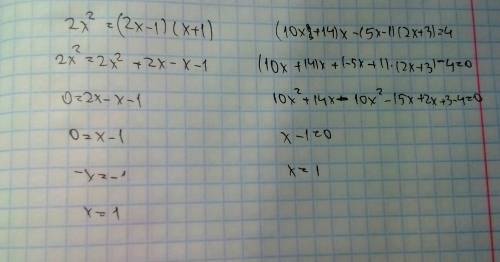 2x² = (2x-1)(x+1)
2x² = 2x² + 2x - x - 1
0 = 2x - x - 1
0 = x - 1
-x = -1
x = 1
(10x+14)x - (5x-1)(2x+3) = 4
(10x+14)x + (-5x+1)·(2x+3) - 4 = 0
10x² + 14x - 10x² - 15x + 2x + 3 - 4 = 0
x - 1 = 0
x = 1